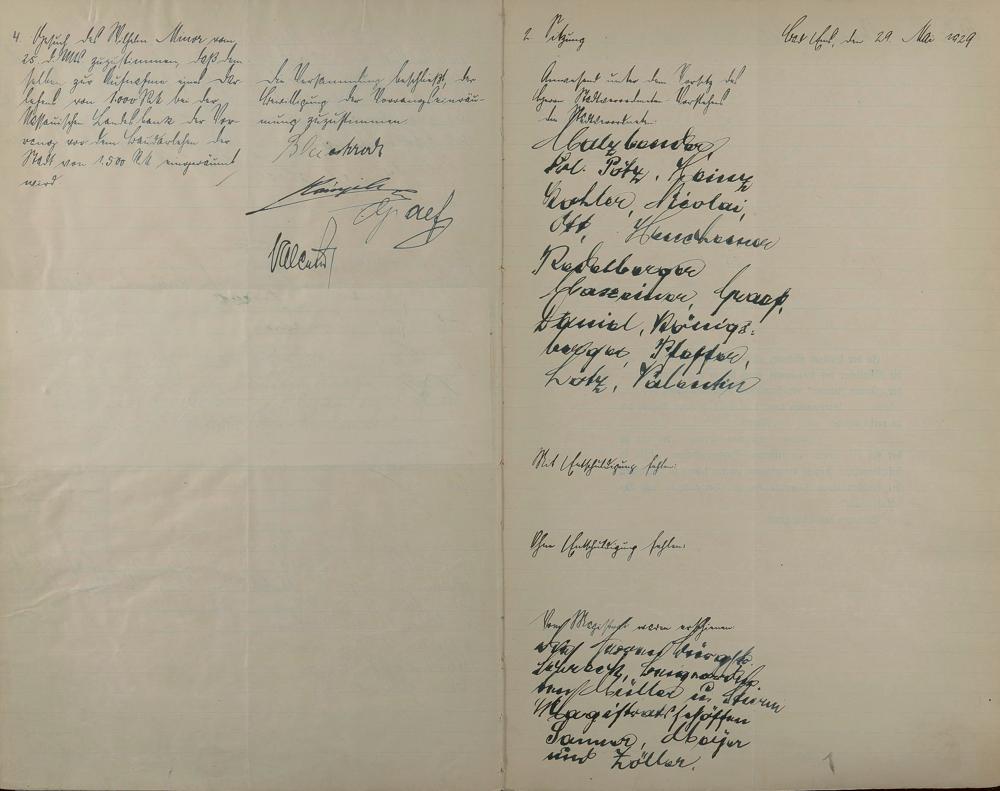 4. Gesuch des Wilhelm Minor vom
25. d. Mts zuzustimmen, daß dem-
selben zur Aufnahme eines Dar-
lehens von 1.000 RM bei der
Nassauischen Landesbank der Vor-
rang vor dem Baudarlehen der
Stadt von 1.500 RM eingeräumt
wird
Die Versammlung beschließt, der
Bewilligung der Vorrangseinräu-
mung zuzustimmen
Graef
Valentin
2. Sitzung
Bad Ems, den 29. Mai 1929
Anwesend unter dem Vorsitz des
Herrn Stadtverordneten-Vorstehers
die Stadtverordneten
Malzbender,
Pötz, Heinz
Kohler, Nicolai,
Ott,
Redelberger
Graef,
Daniel, Königs-
berger, Pfeffer,
Lotz, Valentin
Mit Entschuldigung fehlen:
Ohne Entschuldigung fehlen:
Vom Magistrat waren erschienen
Schreck, Beigeord-
Müller u. Sturm
Magistratsschöffen
Sanner, Meyer
und Zöller.